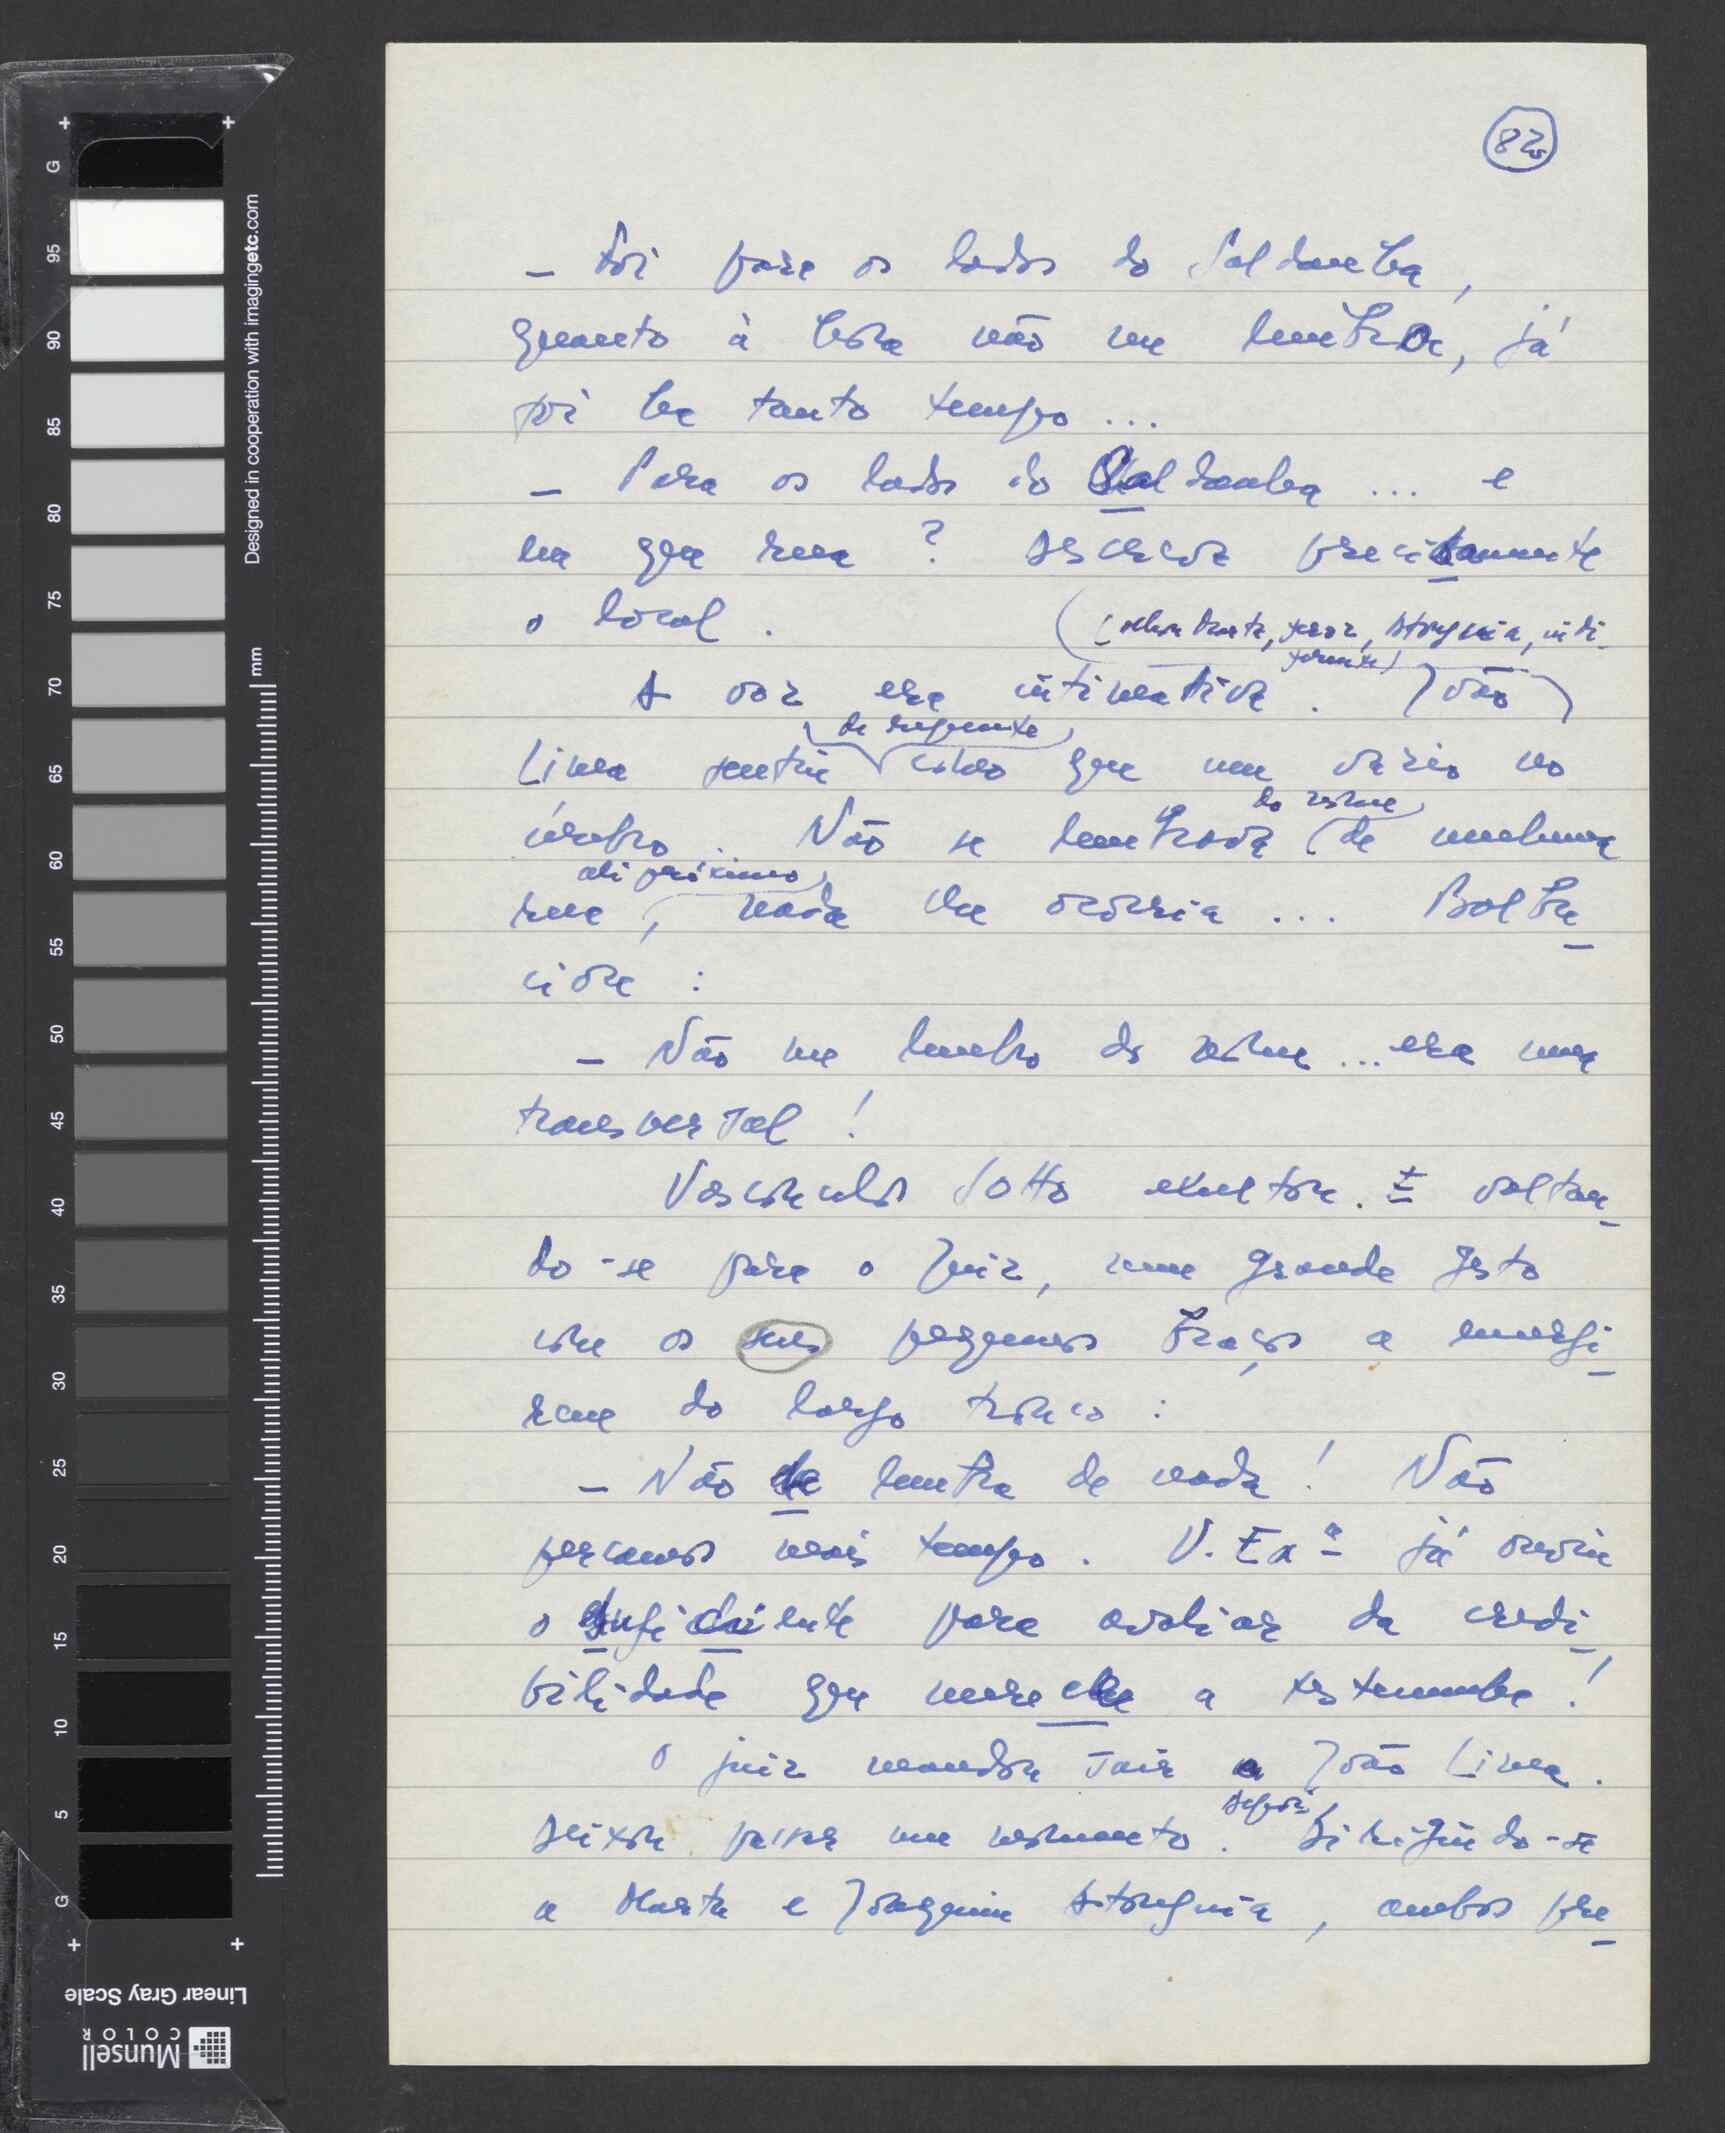 82
— Foi para os lados do Saldanha,
quanto à hora não me lembro, já
foi há tanto tempo ...
— Para os lados do Saldanha ... e
na que rua? Descreva precisamente
o local.
(olhou Marta, feroz, Atouguia, indi-
ferente)
A voz era intimativa. João
de repente
Lima sentiu como que um vazio no
do nome
cérebro. Não se lembrava de nenhuma
ali próximo
rua, nada lhe ocorria ... Balbu-
ciou:
— Não me lembro do nome ... era uma
transversal!
Vasconcelos Sotto exultou. E voltan-
do-se para o Juiz, num grande gesto
com os seus pequenos braços a emergi-
rem do largo tronco:
— Não se lembra de nada! Não
percamos mais tempo. V. Exª já ouviu
o suficiente para avaliar da credi-
bilidade que merece a testemunha!
O juiz mandou sair a João Lima.
Depois
Deixou passar um momento. Dirigindo-se
a Marta e Joaquim Atouguia, ambos pre-
G
95
90
85
80
75
70
65
60
55
50
45
40
35
30
25
20
15
10
5
G
Designed in cooperation with imagingetc.com
mm
Linear Gray Scale
Munsell
COLOR